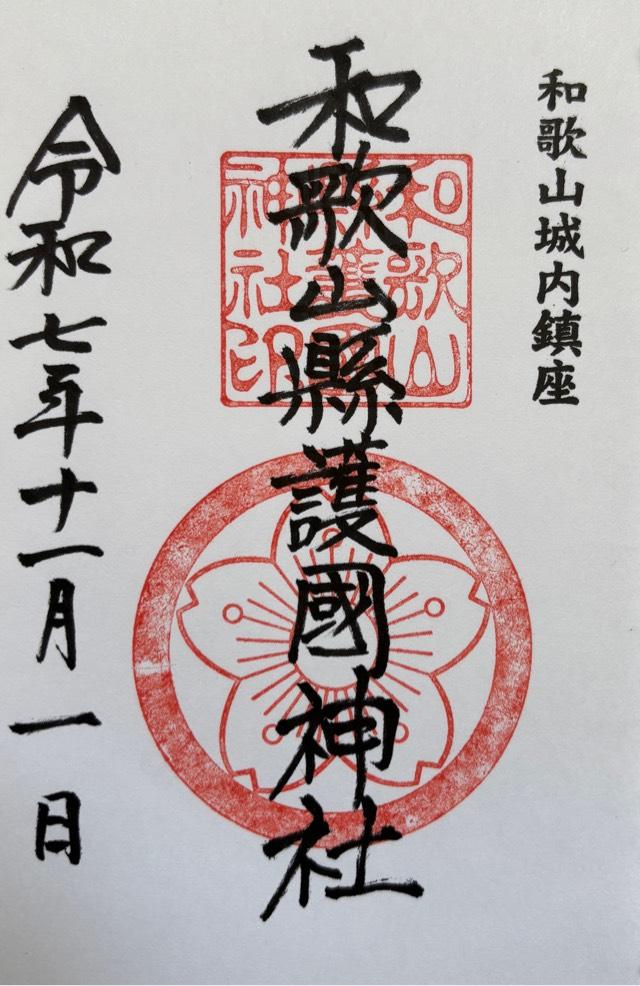 和歌山城内鎮座
和歌山縣護國神社
和歌山
縣護國
神社印
令和七年十一月一日